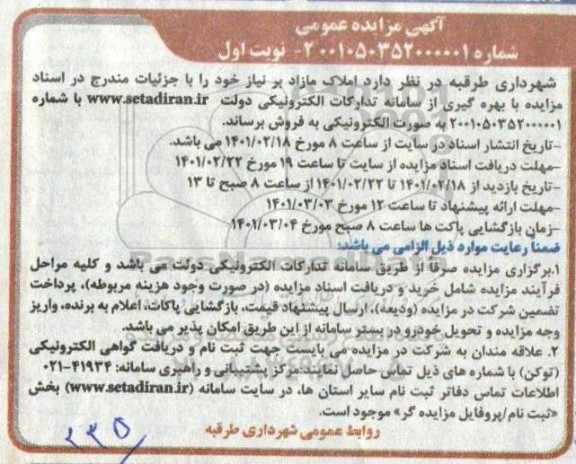 آگهی مزایده عمومی
شماره ۲۰۰۱۰۵۰۳۵۲۰۰۰۰۰۱ - نوبت اول
شهرداری طرقبه در نظر دارد املاک مازاد بر نیاز خود را با جزئیات مندرج در اسناد
مزایده با بهره گیری از سامانه تدارکات الکترونیکی دولت www.setadiran.ir با شماره
۲۰۰۱۰۵۰۳۵۲۰۰۰۰۰۱ به صورت الکترونیکی به فروش برساند.
-تاریخ انتشار اسناد در سایت از ساعت ۸ مورخ ۱۴۰۱/۰۲/۱۸ می باشد.
-مهلت دریافت اسناد مزایده از سایت تا ساعت ۱۹ مورخ ۱۴۰۱/۰۲/۲۲
-تاریخ بازدید از ۱۴۰۱/۰۲/۱۸ تا ۱۴۰۱/۰۲/۲۲ از ساعت ۸ صبح تا ۱۳
-مهلت ارائه پیشنهاد تا ساعت ۱۲ مورخ ۱۴۰۱/۰۳/۰۳
-زمان بازگشایی پاکت ها ساعت ۸ صبح مورخ ۱۴۰۱/۰۳/۰۴
ضمنا رعایت موارد ذیل الزامی می باشد:
۱.برگزاری مزایده صرفا از طریق سامانه تدارکات الکترونیکی دولت می باشد و کلیه مراحل
فرآیند مزایده شامل خرید و دریافت اسناد مزایده (در صورت وجود هزینه مربوطه)، پرداخت
تضمین شرکت در مزایده (ودیعه)، ارسال پیشنهاد قیمت، بازگشایی پاکات، اعلام به برنده، واریز
وجه مزایده و تحویل خودرو در بستر سامانه از این طریق امکان پذیر می باشد.
۲. علاقه مندان به شرکت در مزایده می بایست جهت ثبت نام و دریافت گواهی الکترونیکی
(توکن) با شماره های ذیل تماس حاصل نمایند:مرکز پشتیبانی و راهبری سامانه: ۴۱۹۳۴-۰۲۱
اطلاعات تماس دفاتر ثبت نام سایر استان ها، در سایت سامانه (www.setadiran.ir) بخش
«ثبت نام/پروفایل مزایده گر» موجود است.
روابط عمومی شهرداری طرقبه
۲۳۵